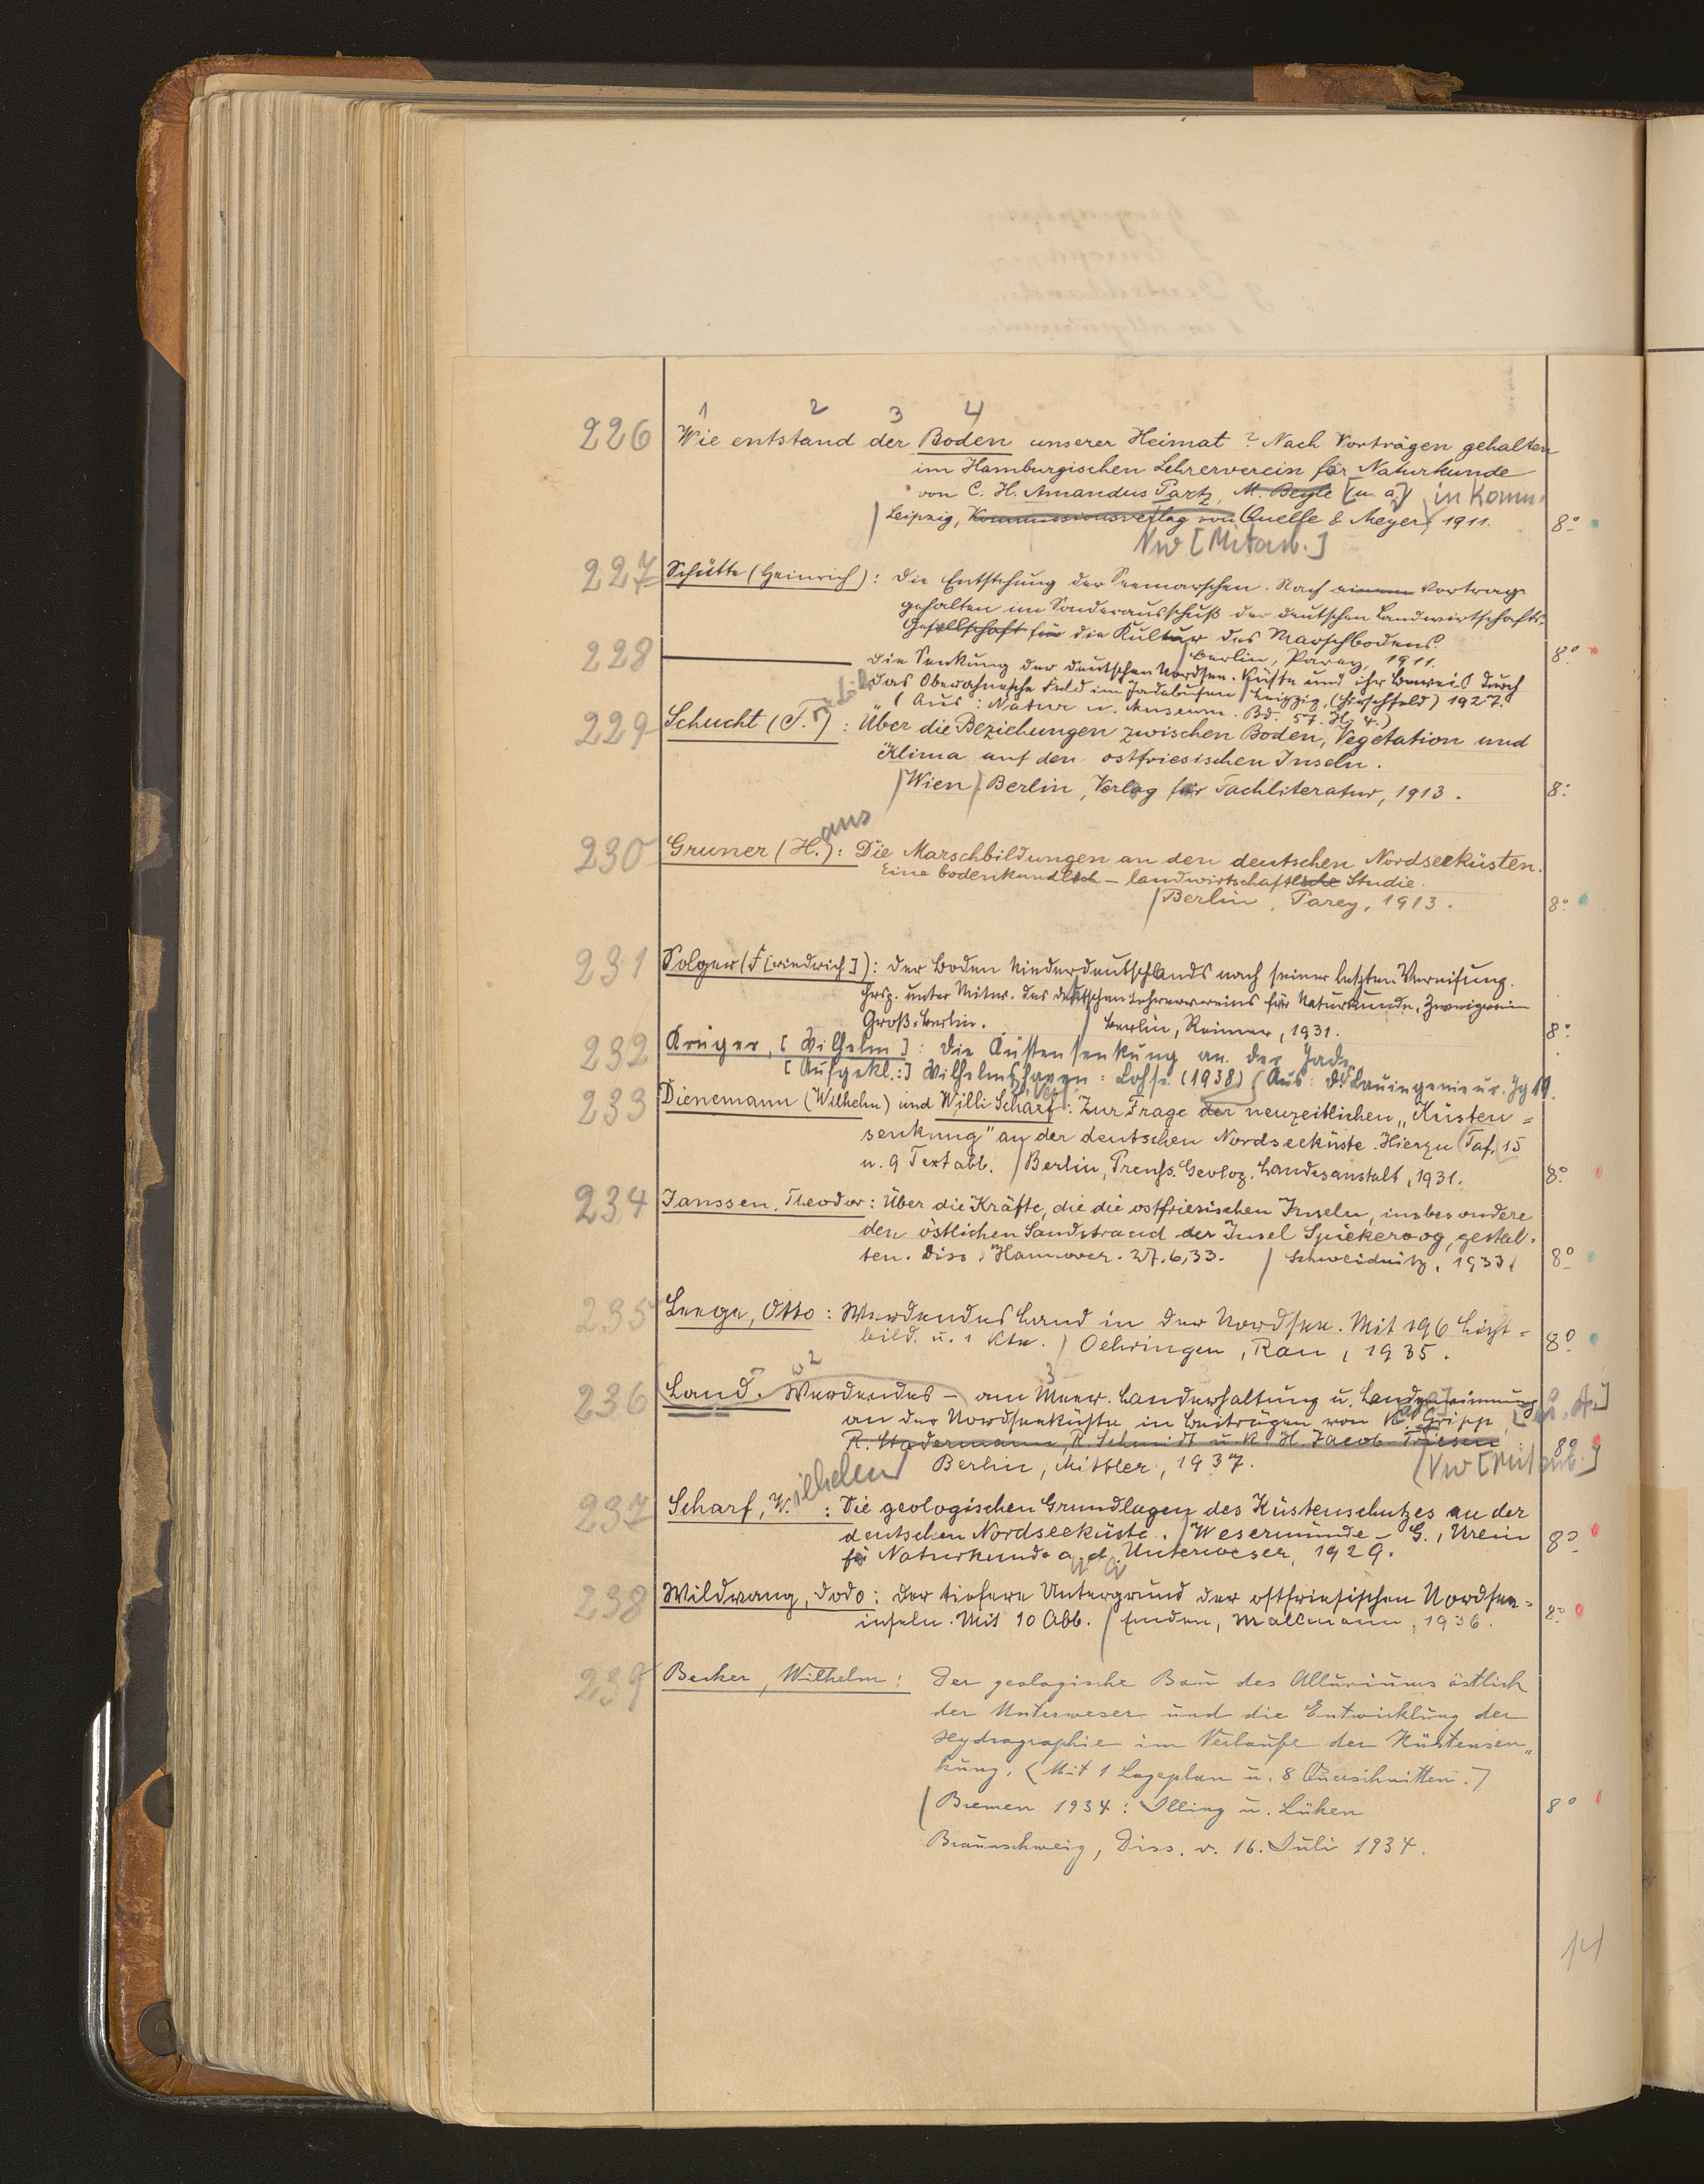 1 2 3 4
226 Wie entstand der Boden unserer Heimat? Nach Vorträgen gehalten
im Hamburgischen Lehrerverein für Naturkunde
von C. H. Amandus Partz, M. Beyle [u. a.] in Komm.
Leipzig, Kommissionsverlag von Quelle & Meyer, 1911. 8°
Vw [Mitarb.]
227 Schütte (Heinrich): Die Entstehung der Seemarschen. Nach einem Vortrage
gehalten im Sonderausschuß der deutschen Landwirtschafts-
Gesellschaft für die Kultur des Marschbodens.
/ Berlin, Parey, 1911. 8°
228 — Die Senkung der deutschen Nordsee-Küste und ihr Beweis durch
das Oberahnesche Feld im Jadebusen / Leipzig, (Hirschfeld) 1927.
(Aus: Natur u. Museum. Bd. 57. H. 4.)
229 Schucht (F.): Über die Beziehungen zwischen Boden, Vegetation und
Klima auf den ostfriesischen Inseln.
/ Wien / Berlin, Verlag für Fachliteratur, 1913. 8°
230 Gruner (H.ans): Die Marschbildungen an den deutschen Nordseeküsten.
Eine bodenkundlich-landwirtschaftlsche Studie.
/ Berlin, Parey, 1913. 8°
231 Solger (F[riedrich]): Der Boden Niederdeutschlands nach seiner letzten Vereisung.
Hrsg. unter Mitw. des deutschen Lehrervereins für Naturkunde, Zweigverein
Groß-Berlin. / Berlin, Reimer, 1931. 8°
232 Krüger, [Wilhelm]: Die Küstensenkung an der Jade.
[Aufgekl.:] Wilhelmshaven: Lohse (1938) (Aus: Der Bauingenieur. Jg 19.
233 Dienemann (Wilhelm) und Willi Scharf: Zur Frage der neuzeitlichen „Küsten-
senkung" an der deutschen Nordseeküste. Hierzu Taf. 15
u. 9 Textabb. / Berlin, Preuß. Geolog. Landesanstalt, 1931. 8°
234 Janssen, Theodor: Über die Kräfte, die die ostfriesischen Inseln, insbesondere
den östlichen Sandstrand der Insel Spiekeroog, gestal-
ten. Diss. Hannover. 27.6.33. / Schweidnitz, 1933. 8°
235 Leege, Otto: Werdendes Land in der Nordsee. Mit 196 Licht-
bild. u. 1 Kte. / Oehringen, Rau, 1935. 8°
236 Land. Werdendes – am Meer. Landerhaltung u. Landgewinnung
an der Nordseeküste in Beiträgen von K. Gripp, [u. A.]
R. Stadermann, R. Schmidt u. K. H. Jacob-Friesen 8°
Berlin, Mittler, 1937. (Vw [Mitarb.]
237 Scharf, W.ilhelm: Die geologischen Grundlagen des Küstenschutzes an der
deutschen Nordseeküste. / Wesermünde-G., Verein 8°
für Naturkunde a. d. Unterweser, 1929.
238 Wildvang, Dodo: Der tiefere Untergrund der ostfriesischen Nordsee-
inseln. Mit 10 Abb. / Emden, Mallmann, 1936. 8°
239 Becker, Wilhelm: Der geologische Bau des Alluviums östlich
der Unterweser und die Entwicklung der
Hydrographie im Verlaufe der Küstensen-
kung. (Mit 1 Lageplan u. 8 Querschnitten.)
/ Bremen 1934: Illing u. Lüken 8°
Braunschweig, Diss. v. 16. Juli 1934.
14